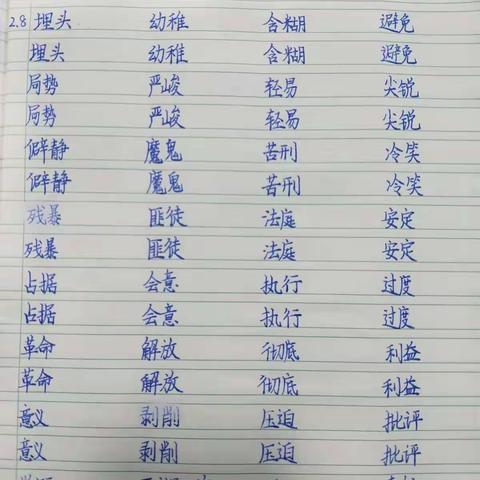 2.8 埋头 幼稚 含糊 避免
埋头 幼稚 含糊 避免
局势 严峻 轻易 尖锐
局势 严峻 轻易 尖锐
僻静 魔鬼 苦刑 冷笑
僻静 魔鬼 苦刑 冷笑
残暴 匪徒 法庭 安定
残暴 匪徒 法庭 安定
占据 会意 执行 过度
占据 会意 执行 过度
革命 解放 彻底 利益
革命 解放 彻底 利益
意义 剥削 压迫 批评
意义 剥削 压迫 批评